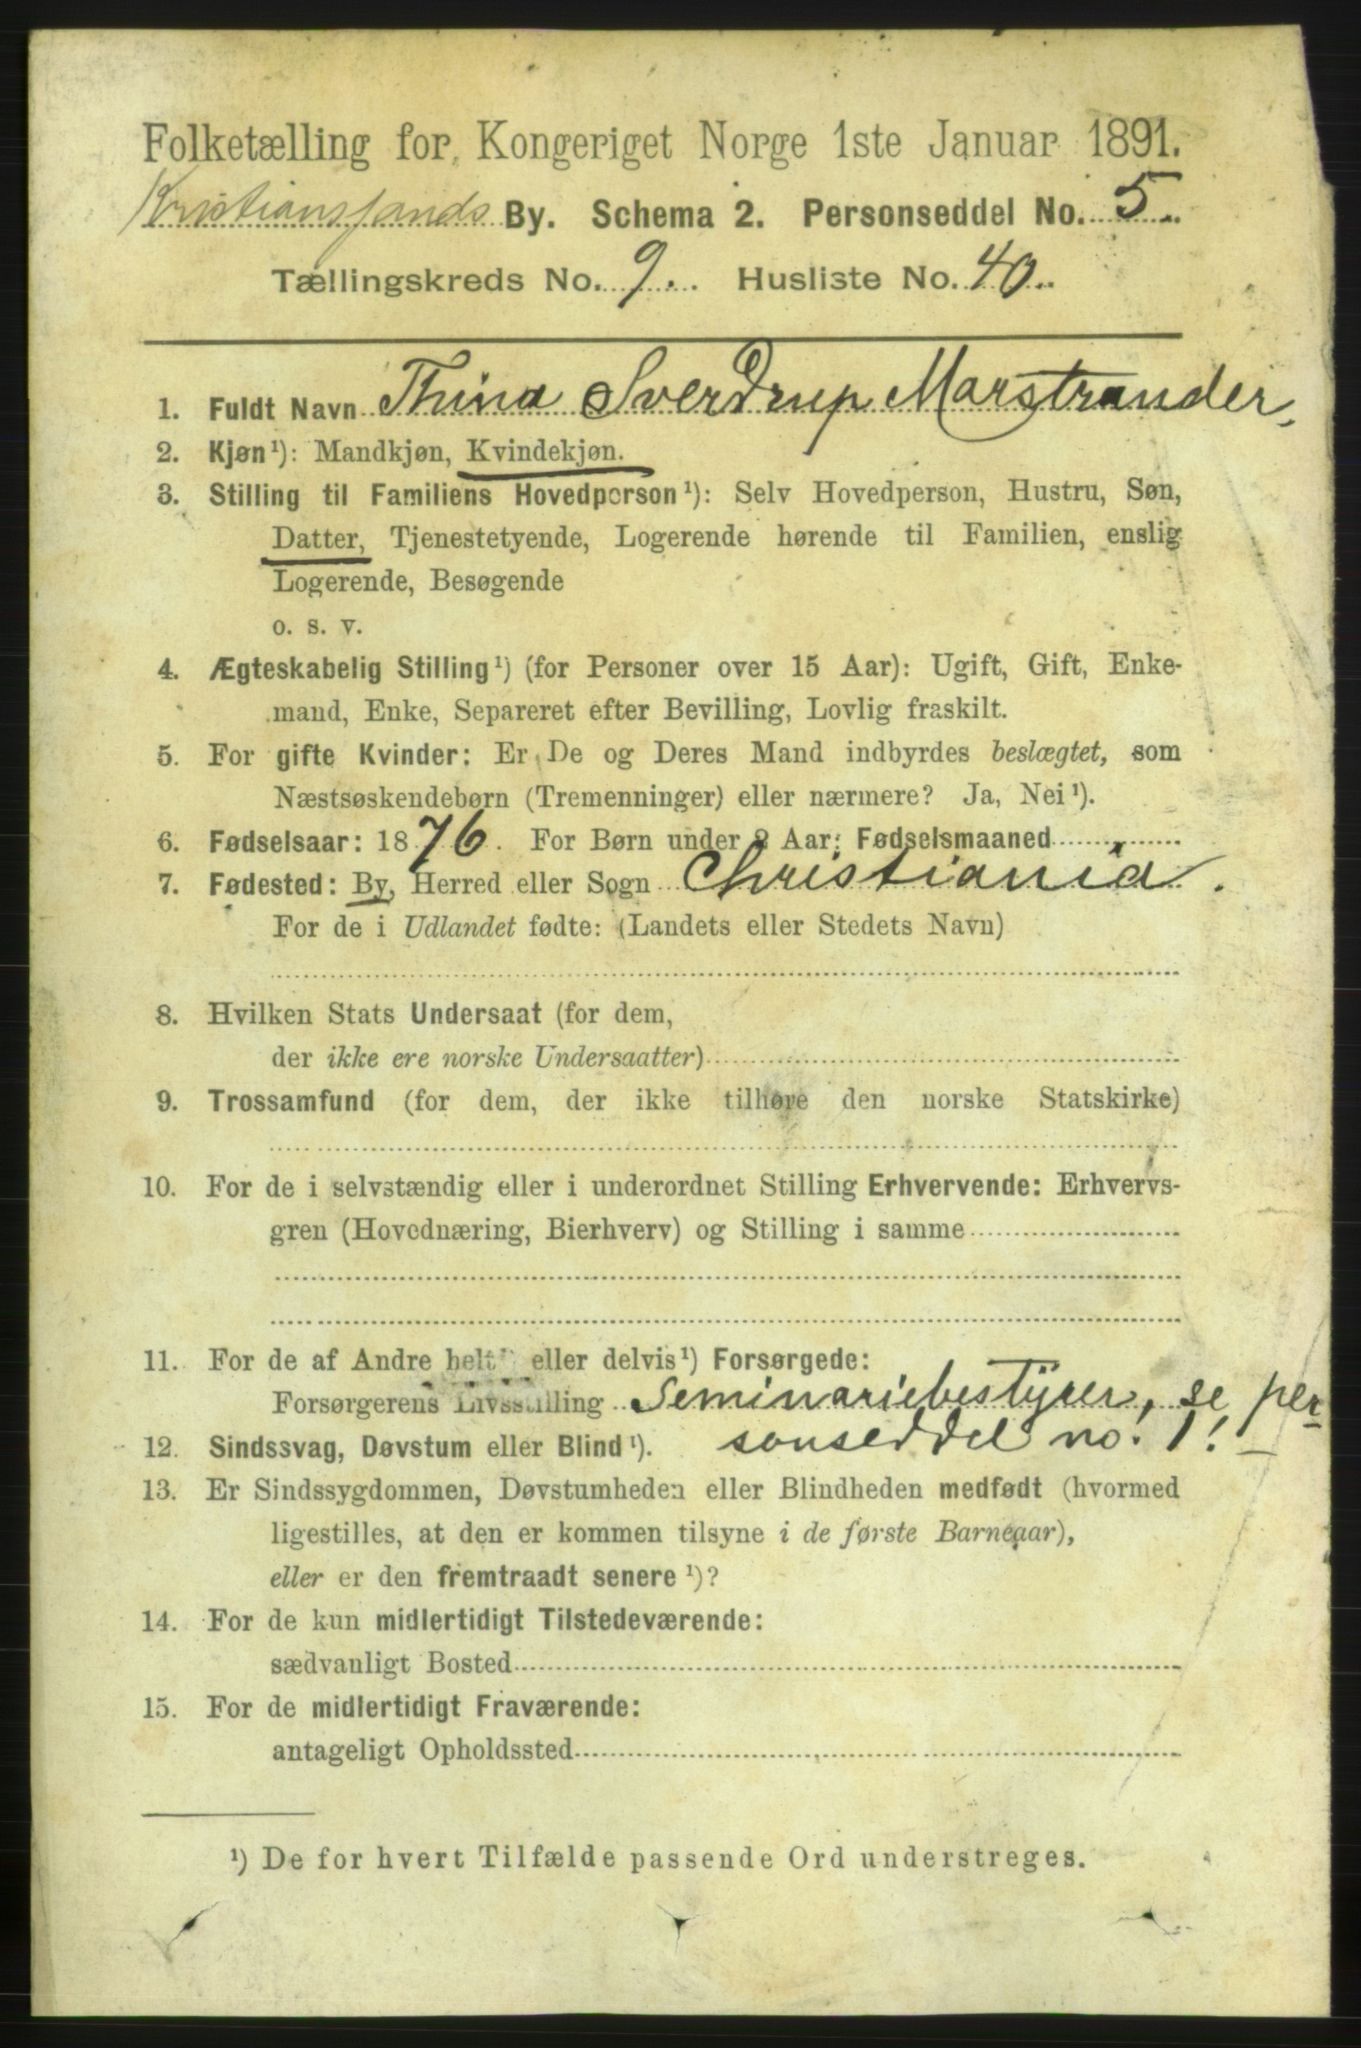 Folketælling for Kongeriget Norge 1ste Januar 1891.
Kristianssands By. Schema 2. Personseddel No. 5.
Tællingskreds No. 9. Husliste No. 40.
1. Fuldt Navn Thina Sverdrup Marstrander,
2. Kjøn¹): Mandkjøn, Kvindekjøn.
3. Stilling til Familiens Hovedperson¹): Selv Hovedperson, Hustru, Søn,
Datter, Tjenestetyende, Logerende hørende til Familien, enslig
Logerende, Besøgende
o. s. v.
4. Ægteskabelig Stilling¹) (for Personer over 15 Aar): Ugift, Gift, Enke-
mand, Enke, Separeret efter Bevilling, Lovlig fraskilt.
5. For gifte Kvinder: Er De og Deres Mand indbyrdes beslægtet, som
Næstsøskendebørn (Tremenninger) eller nærmere? Ja, Nei¹).
6. Fødselsaar: 1876. For Børn under 2 Aar: Fødselsmaaned
7. Fødested: By, Herred eller Sogn Christiania.
For de i Udlandet fødte: (Landets eller Stedets Navn)
8. Hvilken Stats Undersaat (for dem,
der ikke ere norske Undersaatter)
9. Trossamfund (for dem, der ikke tilhøre den norske Statskirke)
10. For de i selvstændig eller i underordnet Stilling Erhvervende: Erhvervs-
gren (Hovednæring, Bierhverv) og Stilling i samme
11. For de af Andre helt eller delvis¹) Forsørgede:
Forsørgerens Livsstilling Seminariebestyrer, se per-
12. Sindssvag, Døvstum eller Blind¹). sonseddel no. 1!
13. Er Sindssygdommen, Døvstumheden eller Blindheden medfødt (hvormed
ligestilles, at den er kommen tilsyne i de første Barneaar),
eller er den fremtraadt senere¹)?
14. For de kun midlertidigt Tilstedeværende:
sædvanligt Bosted
15. For de midlertidigt Fraværende:
antageligt Opholdssted
¹) De for hvert Tilfælde passende Ord understreges.